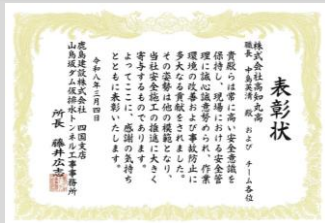 表彰状
株式会社高知丸高
職長 中島英清 殿 および チーム各位
貴殿らは常に高い安全意識を
保持し、現場における安全管
理に誠心誠意努められ、作業
環境の改善および事故防止に
多大なる貢献をされました。
その姿勢は他の模範となり、
当社安全施工の推進に大きく
寄与するものであります。
よってここに、感謝の気持ち
とともに表彰いたします。
令和八年三月四日
鹿島建設株式会社 四国支店
山鳥坂ダム仮排水トンネル工事事務所
所長 藤井広志